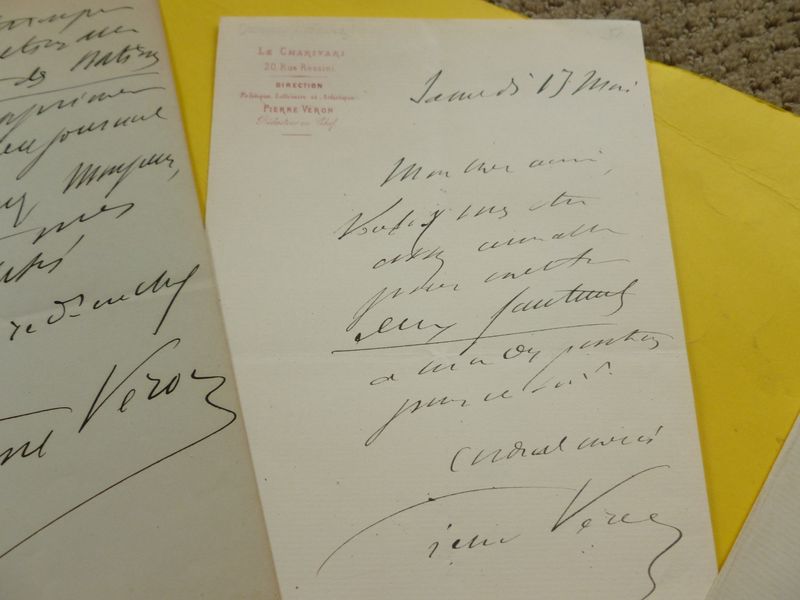 de Matières
journal
Monsieur,
Véron
LE CHARIVARI
20, Rue Rossini
DIRECTION
Politique, Littéraire et Artistique
PIERRE VÉRON
Rédacteur en Chef
Samedi 17 Mai
Mon cher ami,
Voulez vous être
assez aimable
pour mettre
deux fauteuils
à ma disposition
pour ce soir.
Cordialement
Pierre Véron